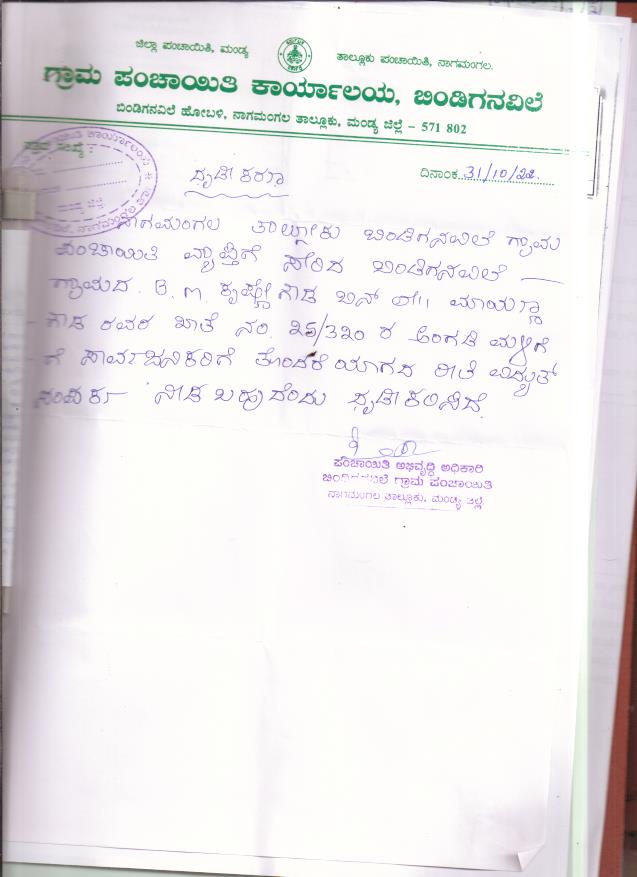 ಜಿಲ್ಲಾ ಪಂಚಾಯಿತಿ, ಮಂಡ್ಯ
ತಾಲ್ಲೂಕು ಪಂಚಾಯಿತಿ, ನಾಗಮಂಗಲ.
ಗ್ರಾಮ ಪಂಚಾಯಿತಿ ಕಾರ್ಯಾಲಯ, ಬಿಂಡಿಗನವಿಲೆ
ಬಿಂಡಿಗನವಿಲೆ ಹೋಬಳಿ, ನಾಗಮಂಗಲ ತಾಲ್ಲೂಕು, ಮಂಡ್ಯ ಜಿಲ್ಲೆ - 571 802
ದಿನಾಂಕ 31/10/
ಧೃಡೀಕರಣ
ನಾಗಮಂಗಲ ತಾಲ್ಲೋಕು ಬಿಂಡಿಗನವಿಲೆ ಗ್ರಾಮ
ಪಂಚಾಯಿತಿ ವ್ಯಾಪ್ತಿಗೆ ಸೇರಿದ ಬಿಂಡಿಗನವಿಲೆ
ಗ್ರಾಮದ B. M. ಕೃಷ್ಣೇಗೌಡ ಬಿನ್ ಲೇ|| ಮಾಯಣ್ಣ
ಗೌಡ ರವರ ಖಾತೆ ನಂ. ರ ಅಂಗಡಿ ಮಳಿಗೆ
ಗೆ ಸಾರ್ವಜನಿಕರಿಗೆ ತೊಂದರೆಯಾಗದ ರೀತಿ ವಿದ್ಯುತ್
ಸಂಪರ್ಕ ನೀಡ ಬಹುದೆಂದು ಧೃಡೀಕರಿಸಿದೆ.
ಪಂಚಾಯಿತಿ ಅಭಿವೃದ್ಧಿ ಅಧಿಕಾರಿ
ಬಿಂಡಿಗನವಿಲೆ ಗ್ರಾಮ ಪಂಚಾಯಿತಿ
ನಾಗಮಂಗಲ ತಾಲ್ಲೂಕು, ಮಂಡ್ಯ ಜಿಲ್ಲೆ.